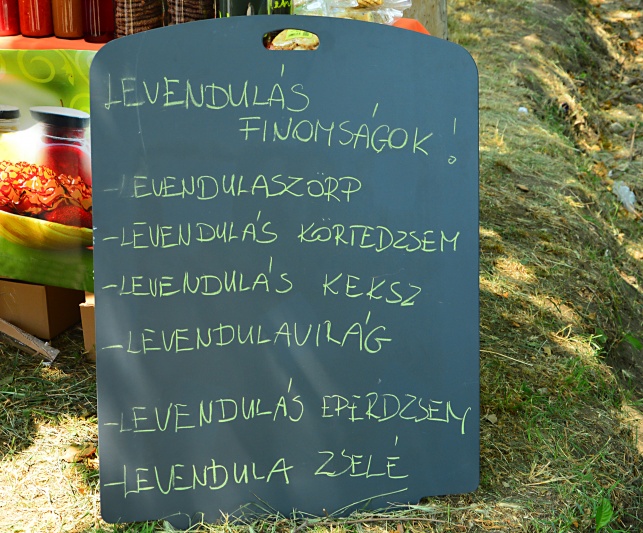 LEVENDULÁS
FINOMSÁGOK!
- LEVENDULASZÖRP
- LEVENDULÁS KÖRTEDZSEM
- LEVENDULÁS KEKSZ
- LEVENDULAVIRÁG
- LEVENDULÁS EPERDZSEM
- LEVENDULA ZSELÉ